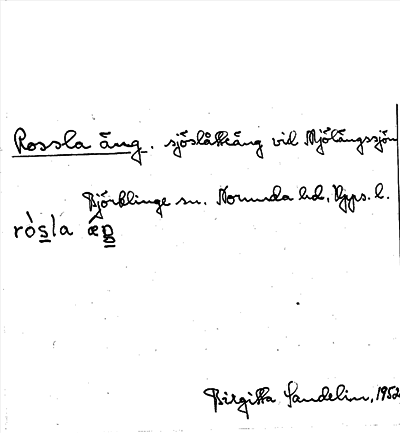 Rossla äng. sjöslåtteäng vid Mjölängssjön
Björklinge sn. Norunda hd, Upps. l.
ròsla ǽŋ
Birgitta Sandelin, 1952